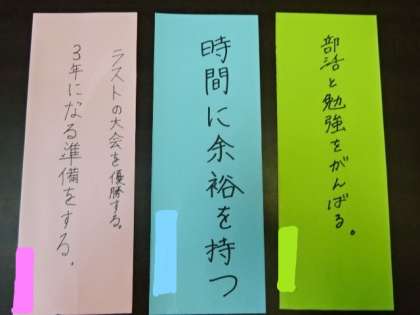 部活と勉強をがんばる。
時間に余裕を持つ
ラストの大会を優勝する。
3年になる準備をする。